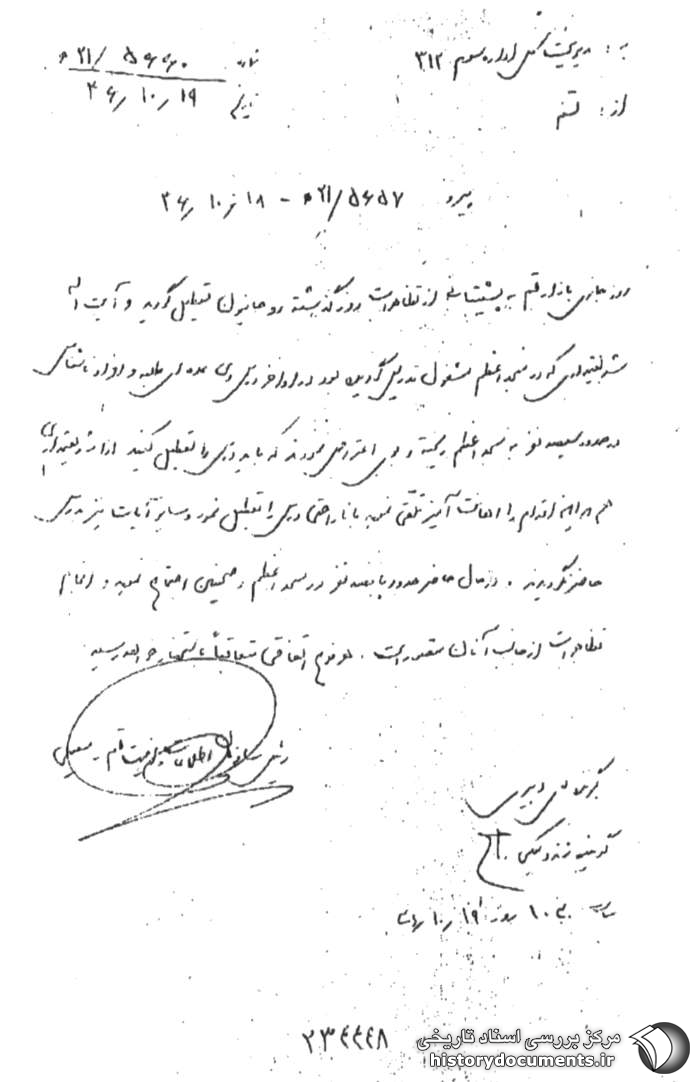 به: مدیریت کل اداره سوم ۳۱۲
شماره ۵۶۶۰ /۲۱ ه
از: قم
تاریخ ۳۶٫۱۰٫۱۹
پیرو ۲۱/۵۶۵۷ ه - ۱۸ ٫ ۱۰ ٫ ۳۶
روز جاری بازار قم به پشتیبانی از تظاهرات روز گذشته روحانیون تعطیل گردید و آیت اله
شریعتمداری که در مسجد اعظم مشغول تدریس گردیده بود در اواخر درس وی عده ای طلبه و افراد ناشناس
در حدود سیصد نفر به مسجد اعظم ریخته و به وی اعتراض نمودند که باید درس را تعطیل کنید لذا شریعتمداری
هم این اقدام را اهانت آمیز تلقی نموده با ناراحتی درس را تعطیل نمود و سایر آیات نیز به درس
حاضر نگردیدند . در حال حاضر حدود پانصد نفر در مسجد اعظم و صحنین اجتماع نموده و انجام
تظاهرات از جانب آنان متصور است . هر نوع اتفاقی متعاقباً باستحضار خواهد رسید
رئیس سازمان اطلاعات و امنیت قم - معینی
گیرنده
گوینده زندوکیلی
ساعت ۱۰ روز ۳۶٫۱۰٫۱۹
۲۳۴۴۴۸
مرکز بررسی اسناد تاریخی
historydocuments.ir